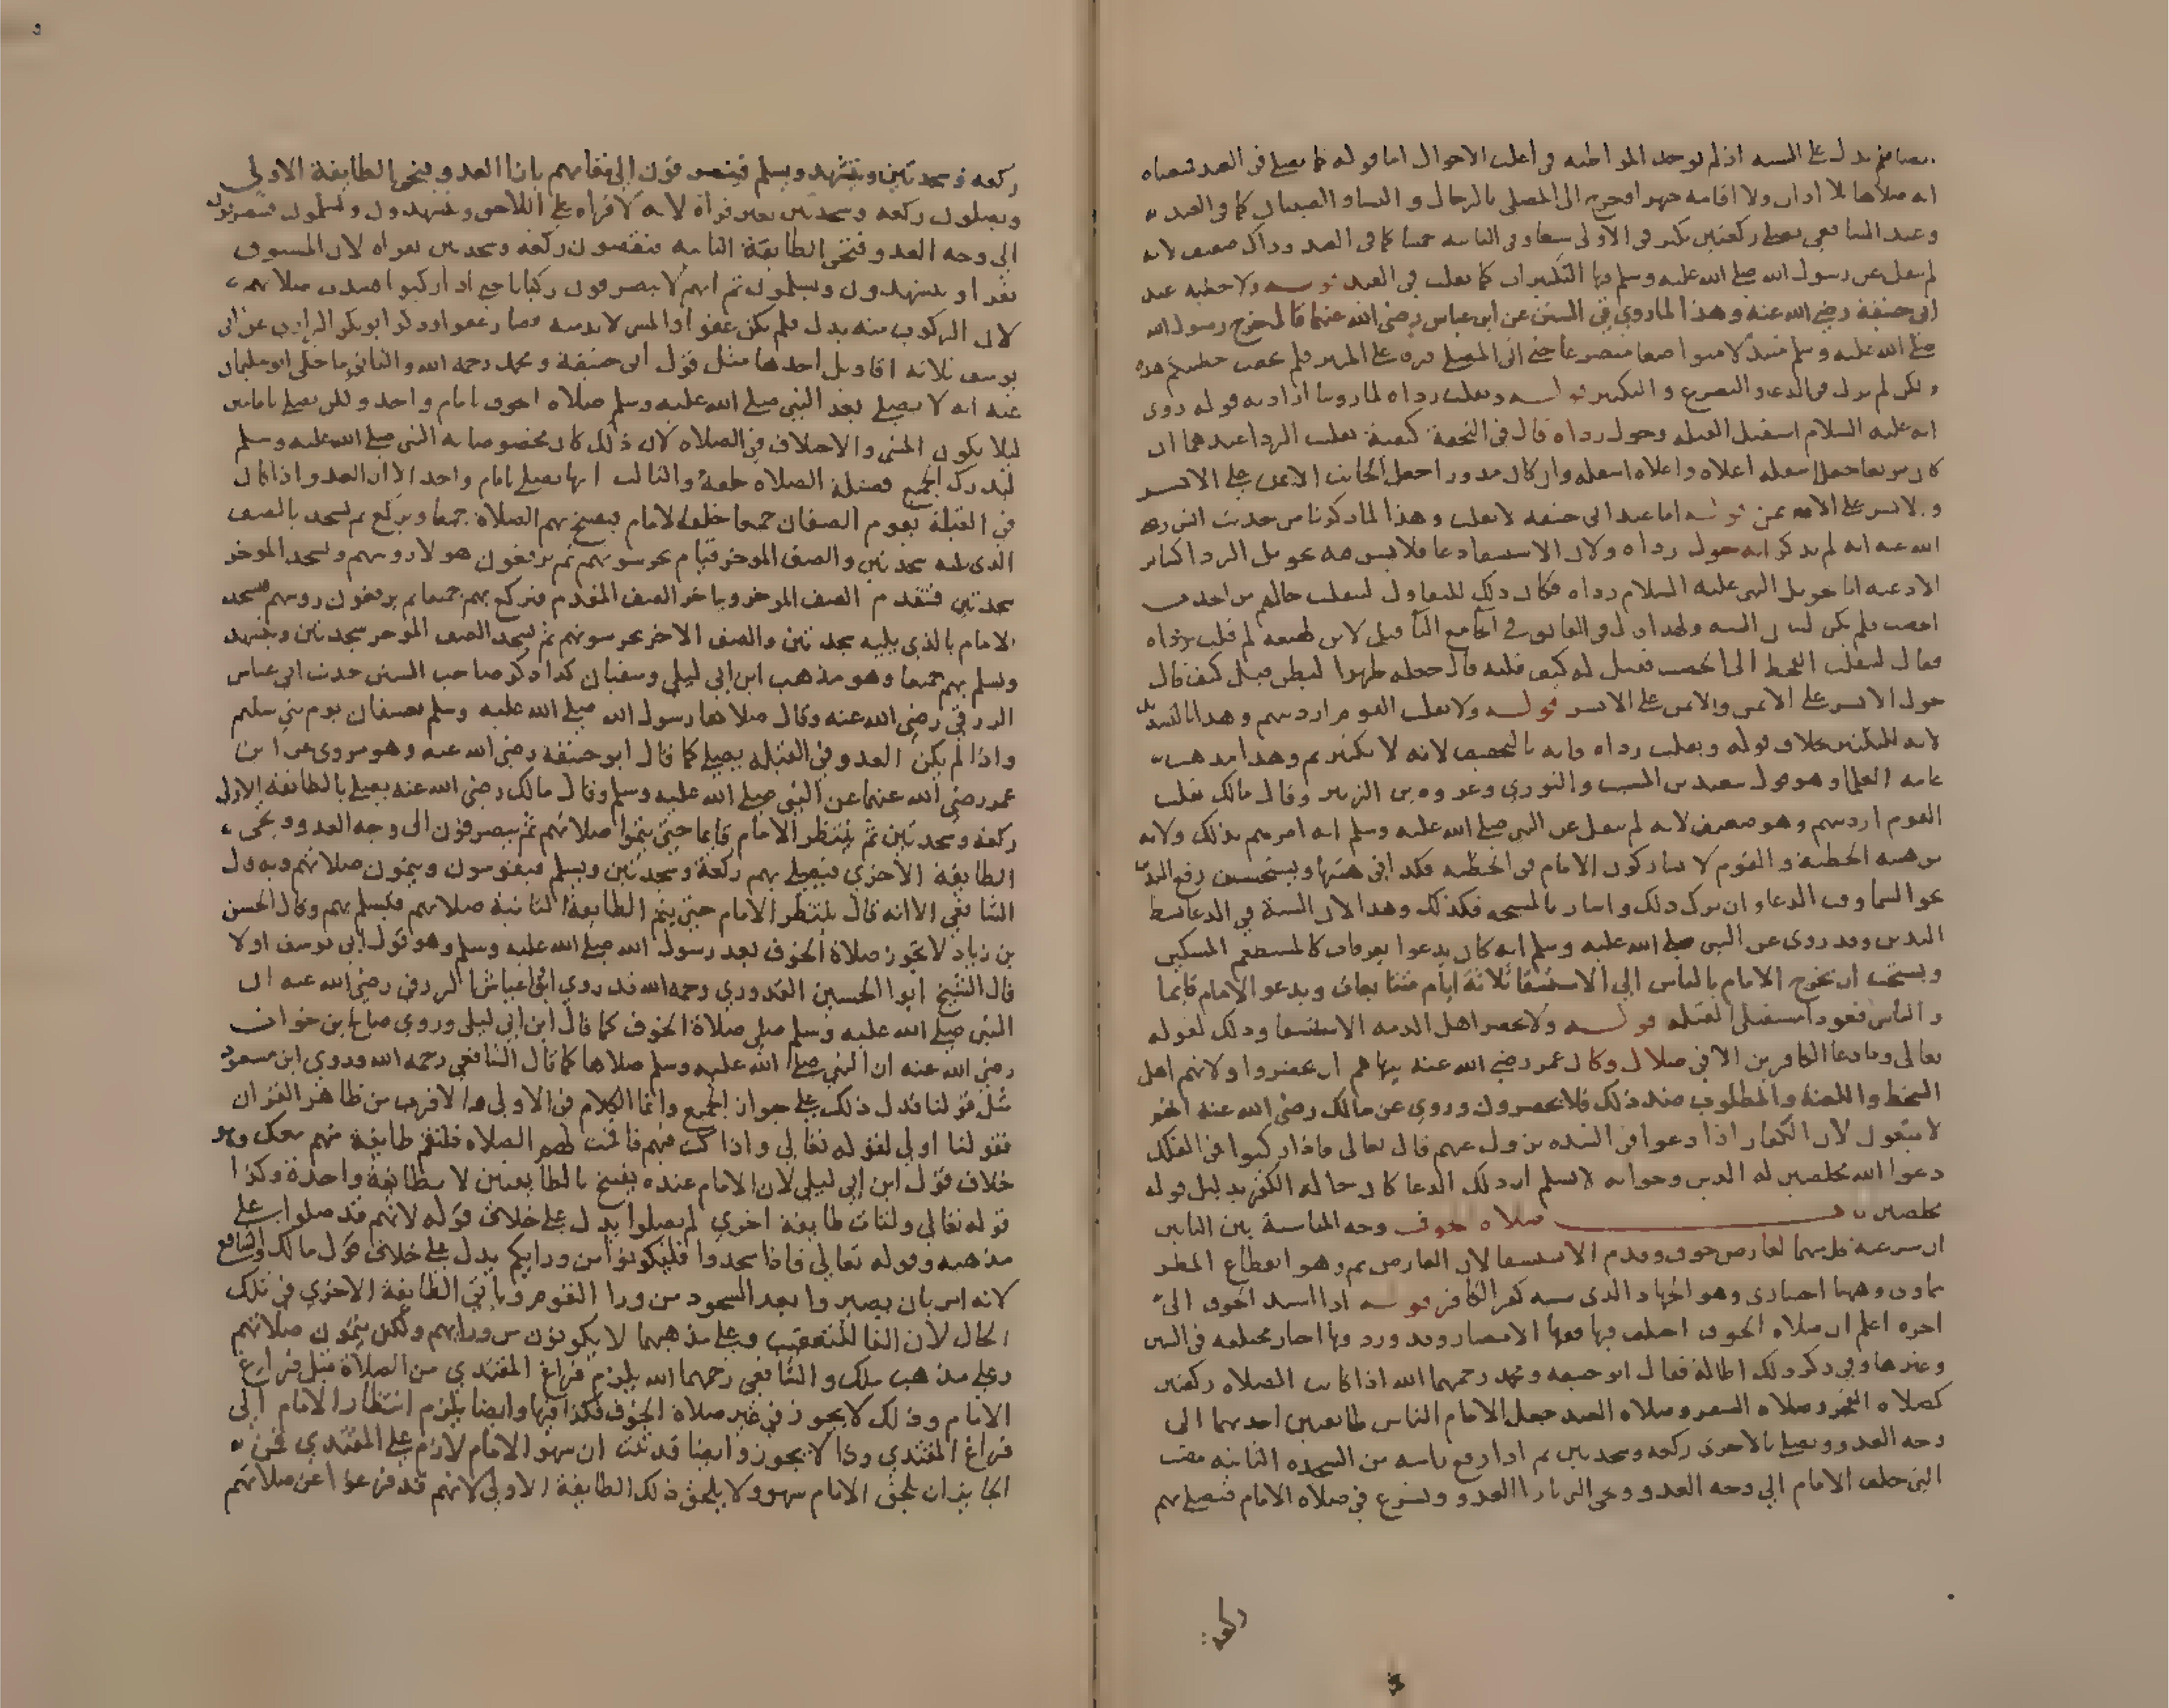 انه صلاها بلا اذان ولا اقامة جهرا فخرج الى المصلى بالرجال والنساء والصبيان كما في العيد
وعند الشافعي يصلي ركعتين يكبر في الاولى سبعا وفي الثانية خمسا كما في العيد وذاك ضعيف لانه
لم ينقل عن رسول الله صلى الله عليه وسلم فيها التكبيرات كما نقلت في العيد قوله ولا خطبة عند
ابي حنيفة رضي الله عنه وهذا لما روي في السنن عن ابن عباس رضي الله عنهما قال خرج رسول الله
صلى الله عليه وسلم متبذلا متواضعا متضرعا حتى اتى المصلى فرقي على المنبر فلم يخطب خطبتكم هذه
ولكن لم يزل في الدعاء والتضرع والتكبير قوله وتقلب رداه لما روينا اراد به قوله روى
انه عليه السلام استقبل القبلة وحول رداه قال في التحفة كيفية تقليب الردا عندهما ان
كان مربعا جعل اسفله اعلاه واعلاه اسفله وان كان مدورا جعل الجانب الايمن على الايسر
والايسر على الايمن قوله اما عند ابي حنيفة لا يقلب وهذا لما ذكرنا من حديث انس رضي
الله عنه انه لم يذكر انه حول رداه ولان الاستسقا دعا فلا يسن فيه تحويل الردا كسائر
الادعية اما تحويل النبي عليه السلام رداه فكان ذلك للتفاول لينقلب حالهم من الجدب
فقال لينقلب القحط الى الخصب فقيل له كيف قلبه قال جعله ظهرا لبطن قيل كيف قال
حول الايسر على الايمن والايمن على الايسر قوله ولا يقلب القوم ارديتهم وهذا بالتشديد
لانه للتكثير بخلاف قوله ويقلب رداه فانه بالتخفيف لانه لا تكثير ثم وهذا مذهب
عامة العلما وهو قول سعيد بن المسيب والثوري وعروة بن الزبير وقال مالك تقلب
القوم ارديتهم وهو ضعيف لانه لم ينقل عن النبي صلى الله عليه وسلم انه امرهم بذلك ولانه
من هيئة الخطبة والقوم لا يشاركون الامام في الخطبة فكذا في هيئتها ويستحسن رفع اليد
نحو السما وقت الدعا وان ترك ذلك واشار بالمسبحة فكذلك وهذا لان السنة في الدعا بسط
اليدين وقد روي عن النبي صلى الله عليه وسلم انه كان يدعوا بعرفات كالمستطعم المسكين
ويستحب ان يخرج الامام بالناس الى الاستسقا ثلاثة ايام متتابعات ويدعو الامام قايما
والناس قعودا مستقبلي القبلة قوله ولا يحضر اهل الذمة الاستسقا وذلك لقوله
تعالى وما دعا الكافرين الا في ضلال وكان عمر رضي الله عنه ينهاهم ان يحضروا ولانهم اهل
السخط واللعنة والمطلوب ضد ذلك فلا يحضرون وروي عن مالك رضي الله عنه انهم
لا يمنعون لان الكفار اذا دعوا في الشدة ينزل عنهم قال تعالى فاذا ركبوا في الفلك
دعوا الله مخلصين له الدين وجوابه لا نسلم ان ذلك الدعا كان حالة الكفر بدليل قوله
مخلصين باب صلاة الخوف وجه المناسبة بين البابين
ان شرعية كل منهما لعارض خوف وقدم الاستسقا لان العارض ثم وهو انقطاع المطر
سماوي وههنا اختياري وهو الجهاد الذي سببه كفر الكافر قوله اذا اشتد الخوف الى
اخره اعلم ان صلاة الخوف اختلف فيها فقها الامصار وقد ورد فيها اخبار مختلفة في السنن
وغيرها وفي ذكر ذلك اطالة فقال ابو حنيفة ومحمد رحمهما الله اذا كانت الصلاة ركعتين
كصلاة الفجر وصلاة السفر وصلاة العيد جعل الامام الناس طايفتين احديهما الى
وجه العدو ويصلي بالاخرى ركعة وسجدتين ثم اذا رفع راسه من السجدة الثانية مضت
التي خلف الامام الى وجه العدو وتجي التي بازا العدو وتشرع في صلاة الامام فيصلي بهم
ركعة
ركعة وسجدتين ويتشهد ويسلم فينصرفون الى مقامهم بازا العدو وتجي الطايفة الاولى
ويصلون ركعة وسجدتين بغير قراة لانه لا قراة على اللاحق ويتشهدون ويسلمون فينصرفون
الى وجه العدو وتجي الطايفة الثانية فيقضون ركعة وسجدتين بقراة لان المسبوق
يقرا ويتشهدون ويسلمون ثم انهم لا ينصرفون ركبانا حتى اذا ركبوا فسدت صلاتهم
يوسف ثلاثة اقاويل احدها مثل قول ابي حنيفة ومحمد رحمه الله والثاني ما حكى ابو سليمان
عنه انه لا يصلي بعد النبي صلى الله عليه وسلم صلاة الخوف بامام واحد ولكن يصلي بامامين
ليلا يكون المشي والاختلاف في الصلاة لان ذلك كان مخصوصا به النبي صلى الله عليه وسلم
ليدرك الجميع فضيلة الصلاة خلفه والثالث انها تصلى بامام واحد الا ان العدو اذا كان
في القبلة يقوم الصفان جميعا خلف الامام فيفتتح بهم الصلاة جميعا ويركع ثم يسجد بالصف
الذي يليه سجدتين والصف الموخر قيام يحرسونهم ثم يرفعون هولا روسهم ويسجد الموخر
سجدتين فيتقدم الصف الموخر ويتاخر الصف المقدم فيركع بهم جميعا ثم يرفعون روسهم فيسجد
الامام بالذي يليه سجدتين والصف الاخر يحرسونهم ثم يسجد الصف الموخر سجدتين ويتشهد
ويسلم بهم جميعا وهو مذهب ابن ابي ليلى وسفيان كذا ذكر صاحب السنن حديث ابي عياش
الزرقي رضي الله عنه وقال صلاها رسول الله صلى الله عليه وسلم بعسفان يوم بني سليم
واذا لم يكن العدو في القبلة يصلي كما قال ابو حنيفة رضي الله عنه وهو مروي عن ابن
عمر رضي الله عنهما عن النبي صلى الله عليه وسلم وقال مالك رضي الله عنه يصلي بالطايفة الاولى
ركعة وسجدتين ثم ينتظر الامام قايما حتى يتموا صلاتهم ثم ينصرفون الى وجه العدو وتجي
الطايفة الاخرى فيصلي بهم ركعة وسجدتين ويسلم فيقومون ويتمون صلاتهم وبه قال
الشافعي الا انه قال ينتظر الامام حتى يتم الطايفة الثانية صلاتهم فيسلم بهم وقال الحسن
بن زياد لا تجوز صلاة الخوف بعد رسول الله صلى الله عليه وسلم وهو قول ابي يوسف اولا
قال الشيخ ابوا الحسين القدوري رحمه الله قد روي ابو عياش الزرقي رضي الله عنه ان
النبي صلى الله عليه وسلم صلى صلاة الخوف كما قال ابن ابي ليلى وروي صالح بن خوات
رضي الله عنه ان النبي صلى الله عليه وسلم صلاها كما قال الشافعي رحمه الله وروي ابن مسعود
مثل قولنا فدل ذلك على جواز الجميع وانما الكلام في الاولى والاقرب من ظاهر القران
فقولنا اولى لقوله تعالى واذا كنت فيهم فاقمت لهم الصلاة فلتقم طايفة منهم معك وهو
خلاف قول ابن ابي ليلى لان الامام عنده يفتتح بالطايفتين لا بطايفة واحدة وكذا
قوله تعالى ولتات طايفة اخرى لم يصلوا يدل على خلاف قوله لانهم قد صلوا على
مذهبه وقوله تعالى فاذا سجدوا فليكونوا من ورايكم يدل على خلاف قول مالك والشافعي
لانه امر بان يصيروا بعد السجود من ورا القوم وياتي الطايفة الاخرى في تلك
الحال لان الفا للتعقيب وعلى مذهبهما لا يكونون من ورايهم ولكن يتمون صلاتهم
وعلى مذهب ملك والشافعي رحمهما الله يلزم فراغ المقتدي من الصلاة قبل فراغ
الامام وذلك لا يجوز في غير صلاة الخوف فكذا فيها وايضا يلزم انتظار الامام الى
فراغ المقتدي وذا لا يجوز وايضا قد ثبت ان سهو الامام لازم على المقتدي فمن
الجايز ان يلحق الامام سهو ولا يلحق ذلك الطايفة الاولى لانهم قد فرغوا عن صلاتهم